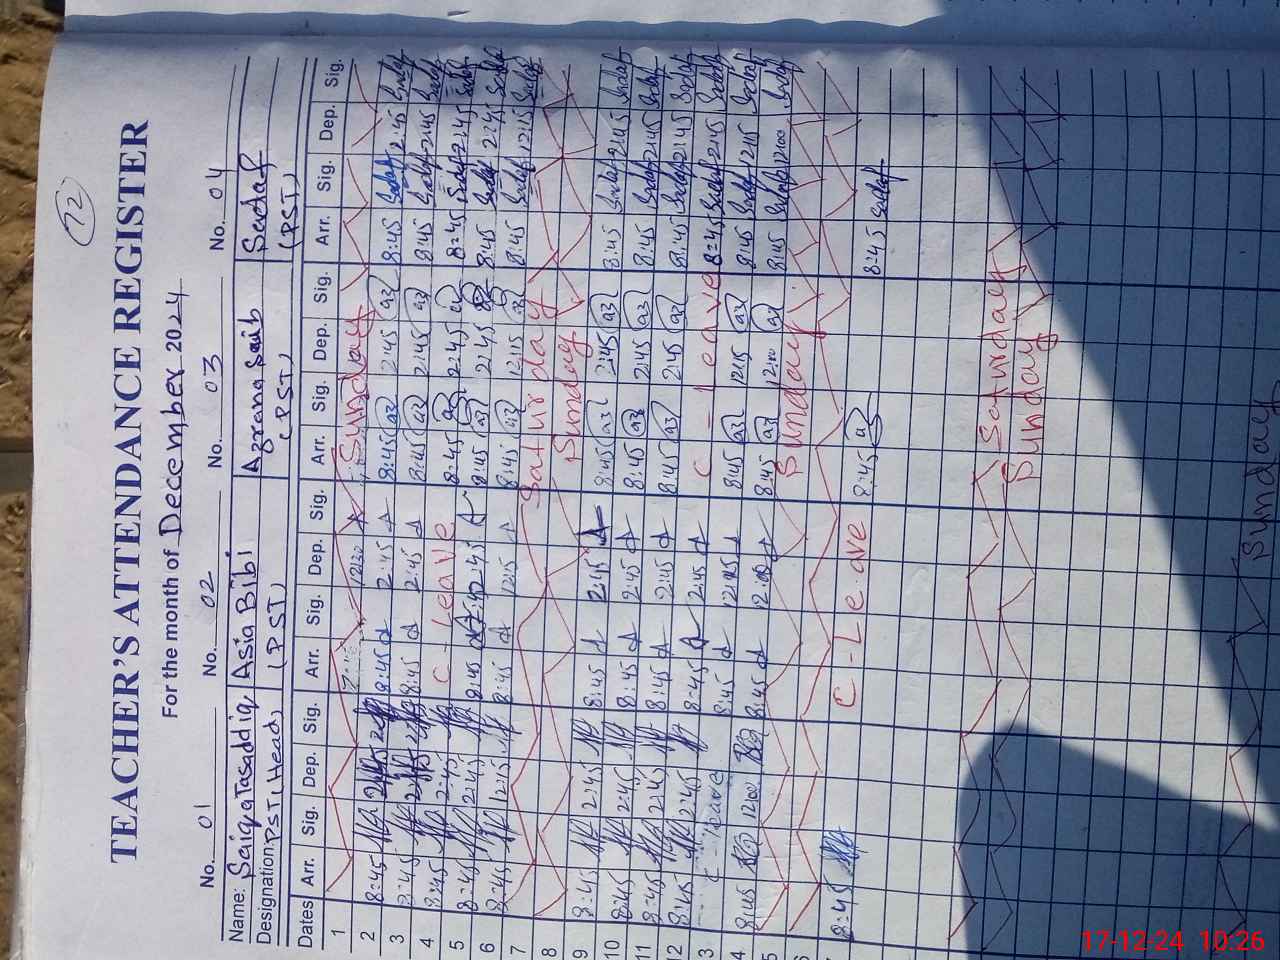 72
TEACHER'S ATTENDANCE REGISTER
For the month of December 2024
No. 01 No. 02 No. 03 No. 04
Name: Saiqa Tasaddiq, Asia Bibi Azrana Saib Sadaf
Designation: PST(Head) (PST) (PST) (PST)
Dates Arr. Sig. Dep. Sig. Arr. Sig. Dep. Sig. Arr. Sig. Dep. Sig. Arr. Sig. Dep. Sig.
1 Sunday
2 8:45 2:45 8:45 2:45 8:45 az 2:45 az 8:45 Sadaf 2:45 Sadaf
3 8:45 2:45 8:45 2:45 8:45 az 2:45 az 8:45 Sadaf 2:45 Sadaf
4 8:45 2:45 C - Leave 8:45 az 2:45 az 8:45 Sadaf 2:45 Sadaf
5 8:45 2:45 8:45 2:45 8:45 az 2:45 8:45 Sadaf 2:45 Sadaf
6 8:45 12:15 8:45 12:15 8:45 az 12:15 az 8:45 Sadaf 12:15 Sadaf
7 Saturday
8 Sunday
9 8:45 2:45 8:45 2:45 8:45 az 2:45 az 8:45 Sadaf 2:45 Sadaf
10 8:45 2:45 8:45 2:45 8:45 az 2:45 az 8:45 Sadaf 2:45 Sadaf
11 8:45 2:45 8:45 2:45 8:45 az 2:45 az 8:45 Sadaf 2:45 Sadaf
12 8:45 2:45 8:45 2:45 C - Leave 8:45 Sadaf 2:45 Sadaf
3 C Leave 8:45 12:15 8:45 az 12:15 az 8:45 Sadaf 12:15 Sadaf
4 8:45 12:00 8:45 12:00 8:45 az 12:00 az 8:45 Sadaf 12:00 Sadaf
5 Sunday
6
7 8:45 C - Leave 8:45 az 8:45 Sadaf
Saturday
Sunday
Sunday
17-12-24 10:26